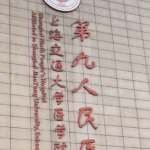 上海交通大学医学院
第九人民医
Shanghai Ninth People's Hospital
Affiliated to Shanghai JiaoTong University, School